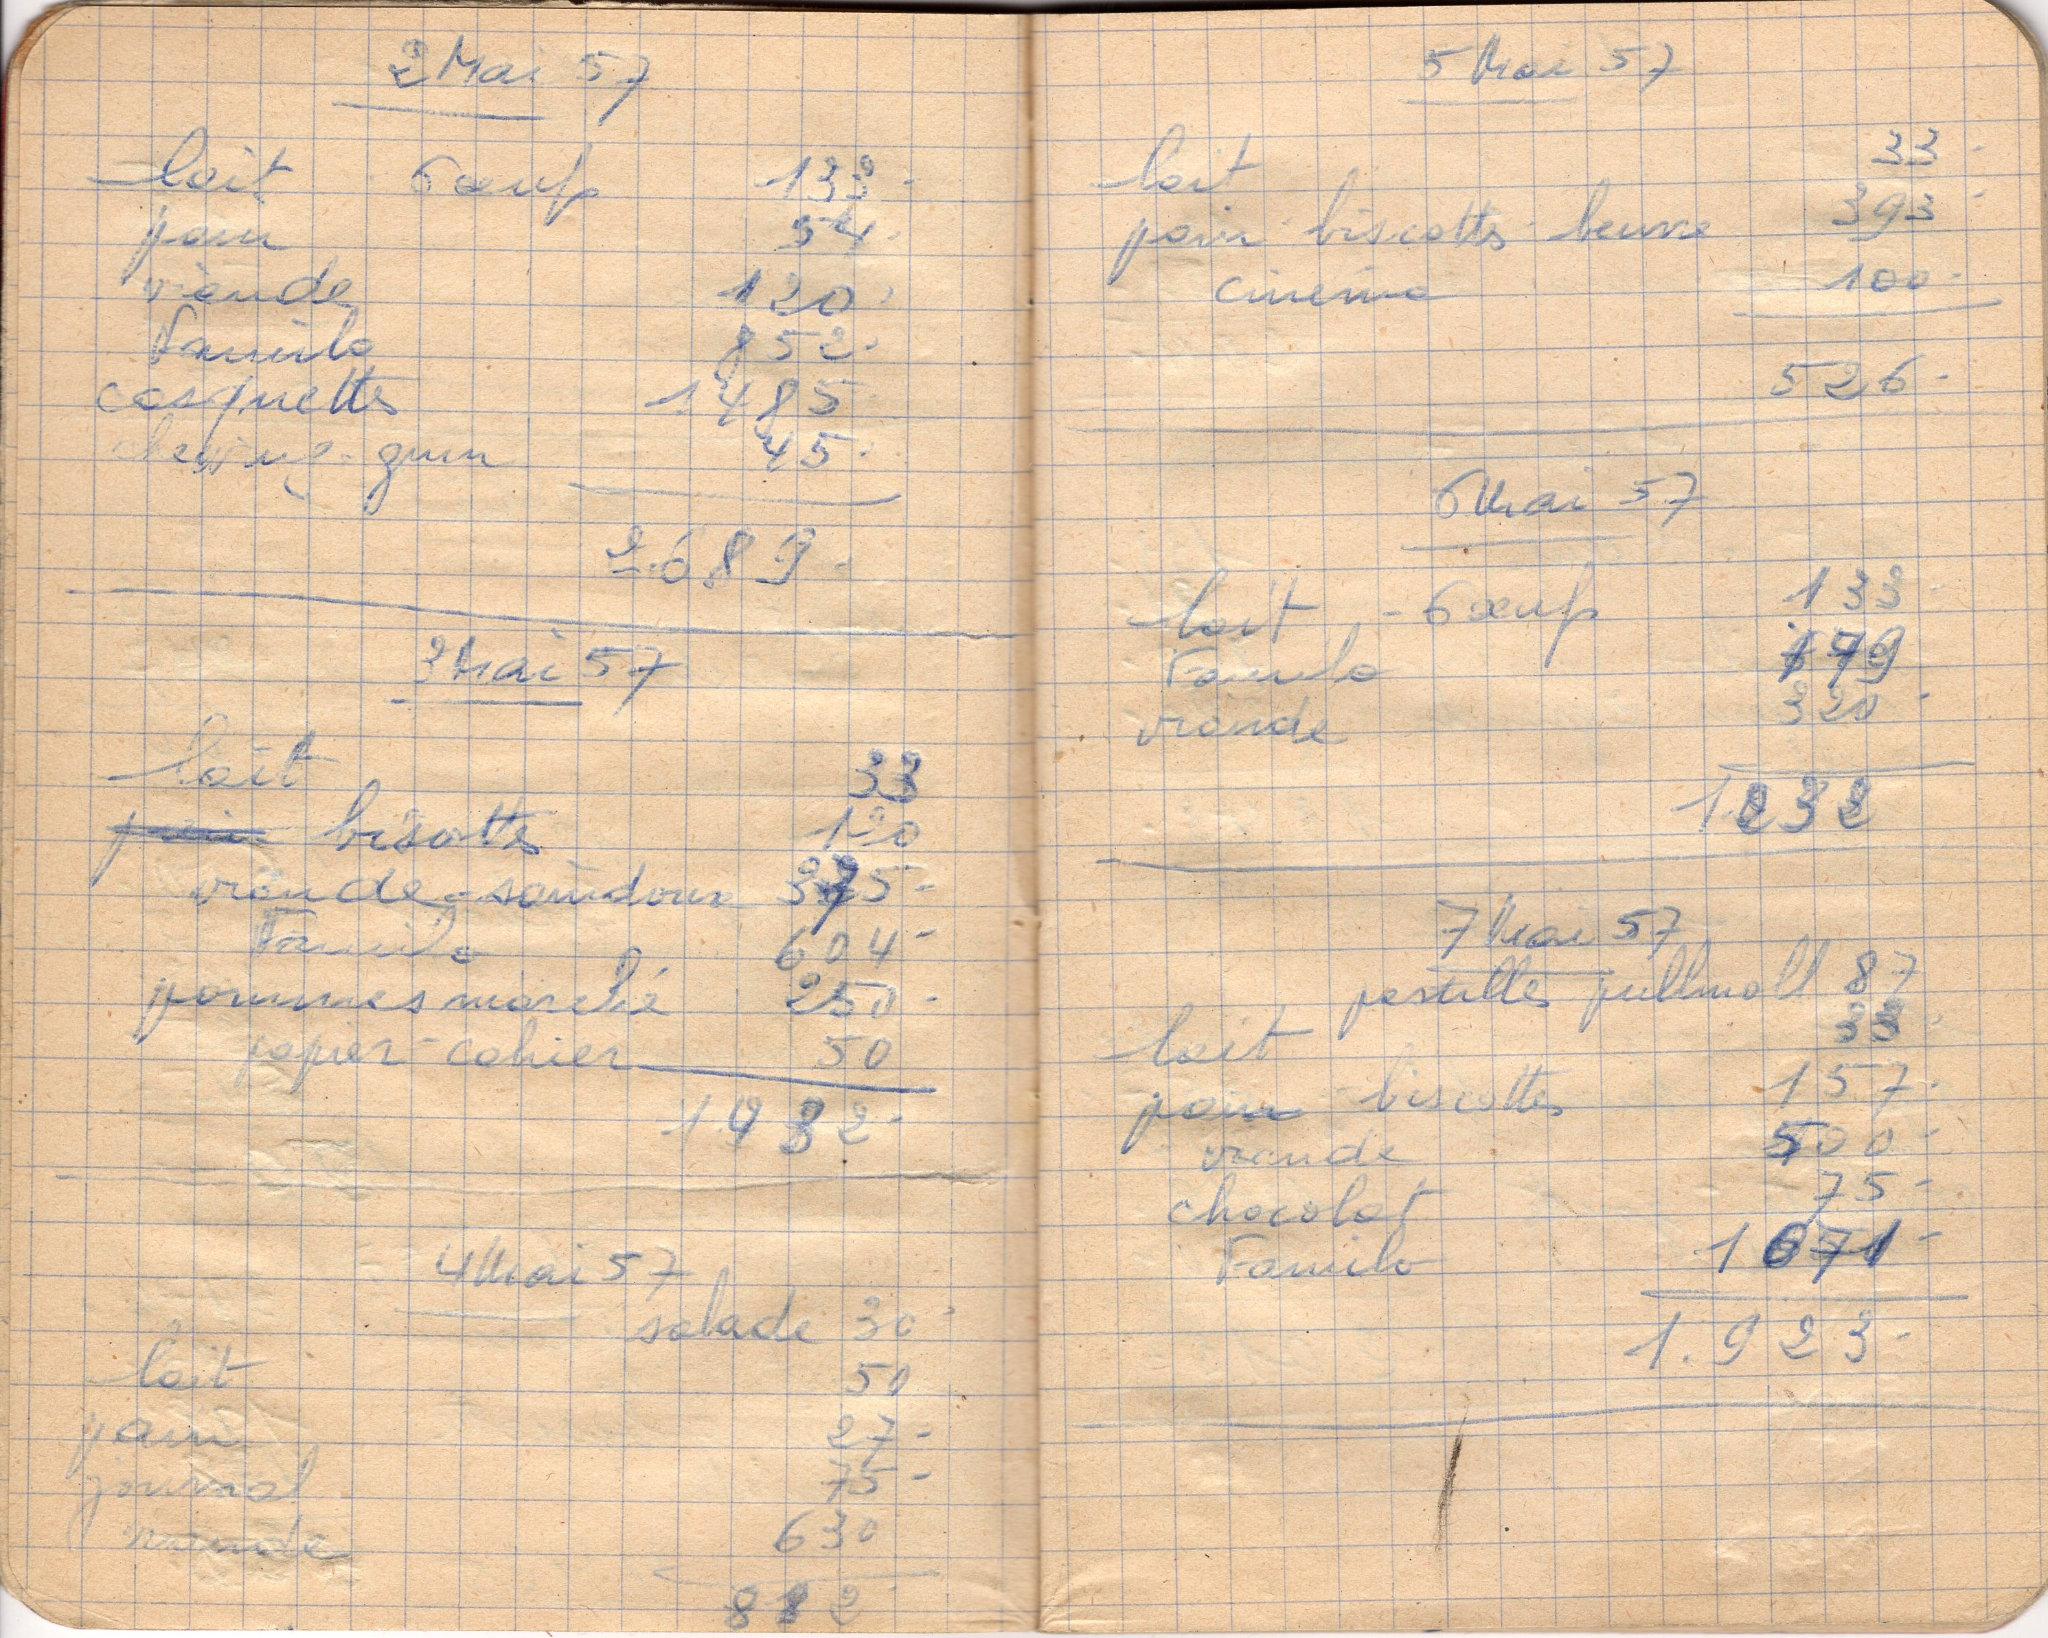 2 Mai 57
lait 6 œufs 133-
pain 54.
viande 120-
Familo 852.
casquettes 1.485
chewing-gum 45.
2.689-
3 Mai 57
lait 33
biscottes 120
viande-saindoux 375-
Familo 604-
pommes marché 250-
papier-cahier 50
1432-
4 Mai 57
salade 30-
lait 50
pain 27-
journal 75-
viande 630
812
5 Mai 57
lait 33-
pain-biscottes-beurre 393-
cinéma 100-
526-
6 Mai 57
lait - 6 œufs 133-
Familo 779
viande 320-
1232
7 Mai 57
pastilles pullmoll 87
lait 33-
pain biscottes 157-
viande 500-
chocolat 75-
Familo 1071-
1.923-